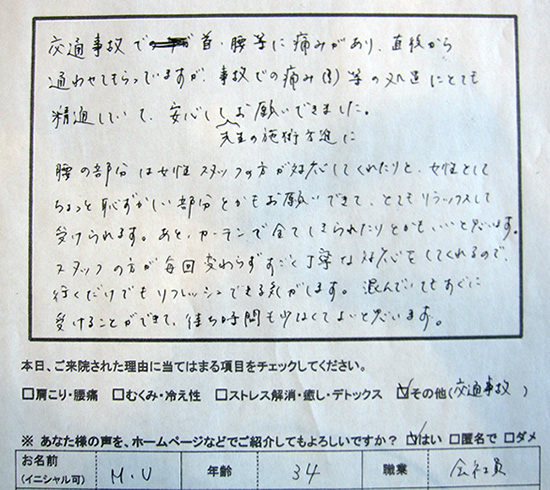 交通事故で首・腰等に痛みがあり、直後から
通わせてもらっていますが、事故での痛み等の処置にとても
精通していて、安心してお願いできました。
先生の施術方進に
腰の部分は女性スタッフの方が対応してくれたりと、女性として
ちょっと恥ずかしい部分とかもお願いできて、とてもリラックスして
受けられます。あと、カーテンで全てしきられたりとかもいいと思います。
スタッフの方が毎回変わらずすごく丁寧な対応をしてくれるので、
行くだけでもリフレッシュできる気がします。混んでいてもすぐに
受けることができて、待ち時間も少なくてよいと思います。
本日、ご来院された理由に当てはまる項目をチェックしてください。
□肩こり・腰痛 □むくみ・冷え性 □ストレス解消・癒し・デトックス ☑その他(交通事故)
※ あなた様の声を、ホームページなどでご紹介してもよろしいですか? ☑はい □匿名で □ダメ
お名前 M.U 年齢 34 職業 会社員
(イニシャル可)